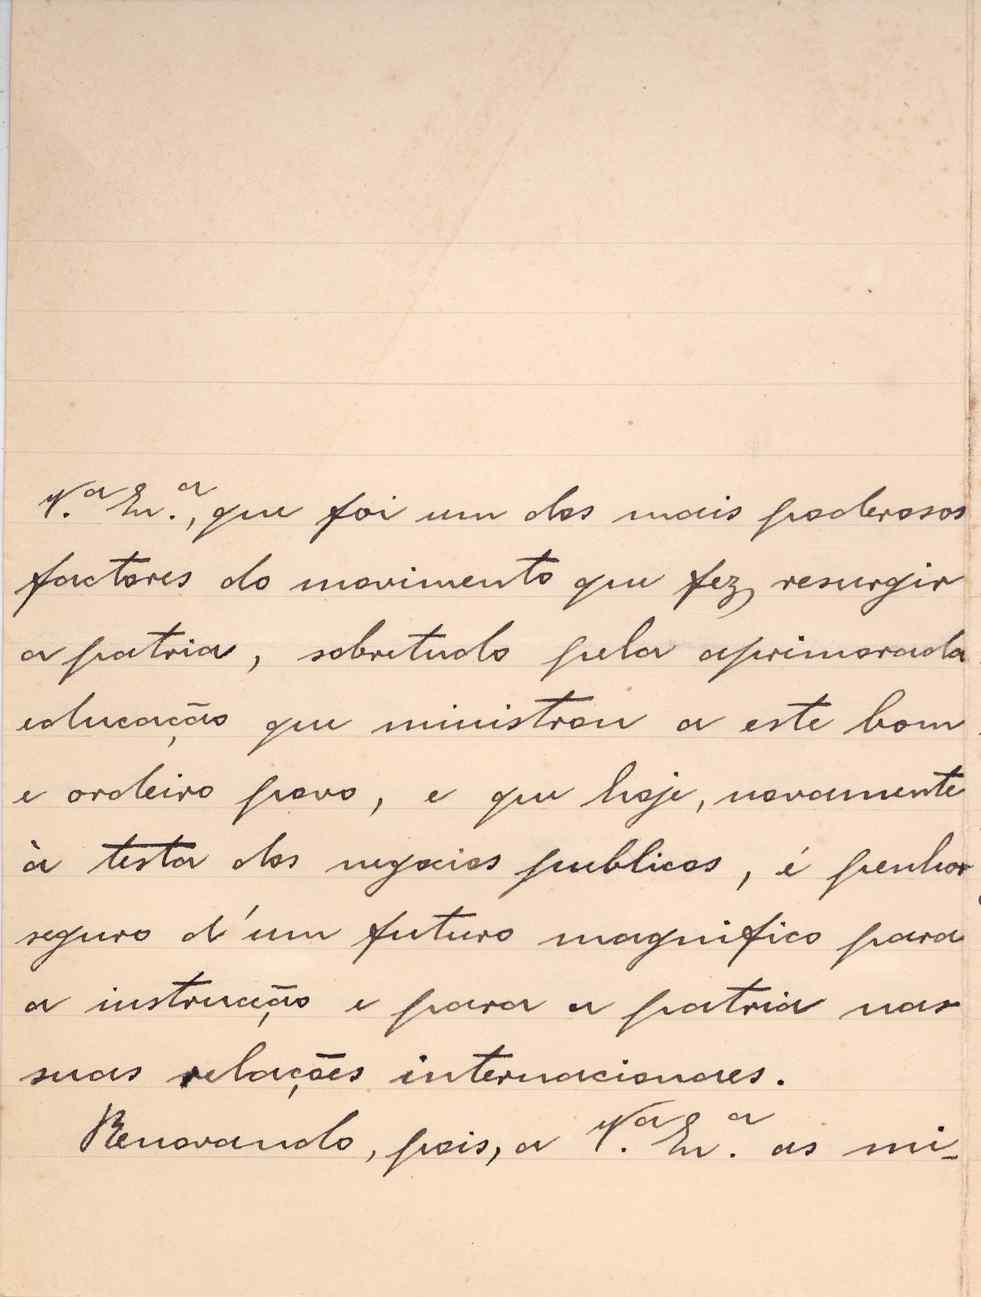 V.ª Ex.ª, que foi um dos mais poderosos
factores do movimento que fez resurgir
a patria, sobretudo pela aprimorada
educação que ministrou a este bom
e ordeiro povo, e que hoje, novamente
à testa dos negocios publicos, é penhor
seguro d'um futuro magnifico para
a instrução e para a patria nas
suas relações internacionaes.
Renovando, pois, a V.ª Ex.ª as mi-